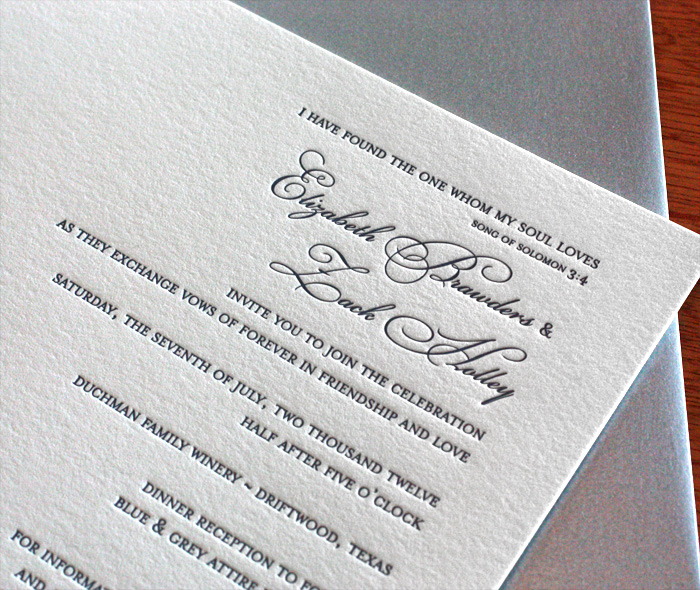 I HAVE FOUND THE ONE WHOM MY SOUL LOVES
SONG OF SOLOMON 3:4
Elizabeth Brawders &
Zach Holley
INVITE YOU TO JOIN THE CELEBRATION
AS THEY EXCHANGE VOWS OF FOREVER IN FRIENDSHIP AND LOVE
SATURDAY, THE SEVENTH OF JULY, TWO THOUSAND TWELVE
HALF AFTER FIVE O'CLOCK
DUCHMAN FAMILY WINERY ~ DRIFTWOOD, TEXAS
DINNER RECEPTION TO
BLUE & GREY ATTIRE
FOR
AND